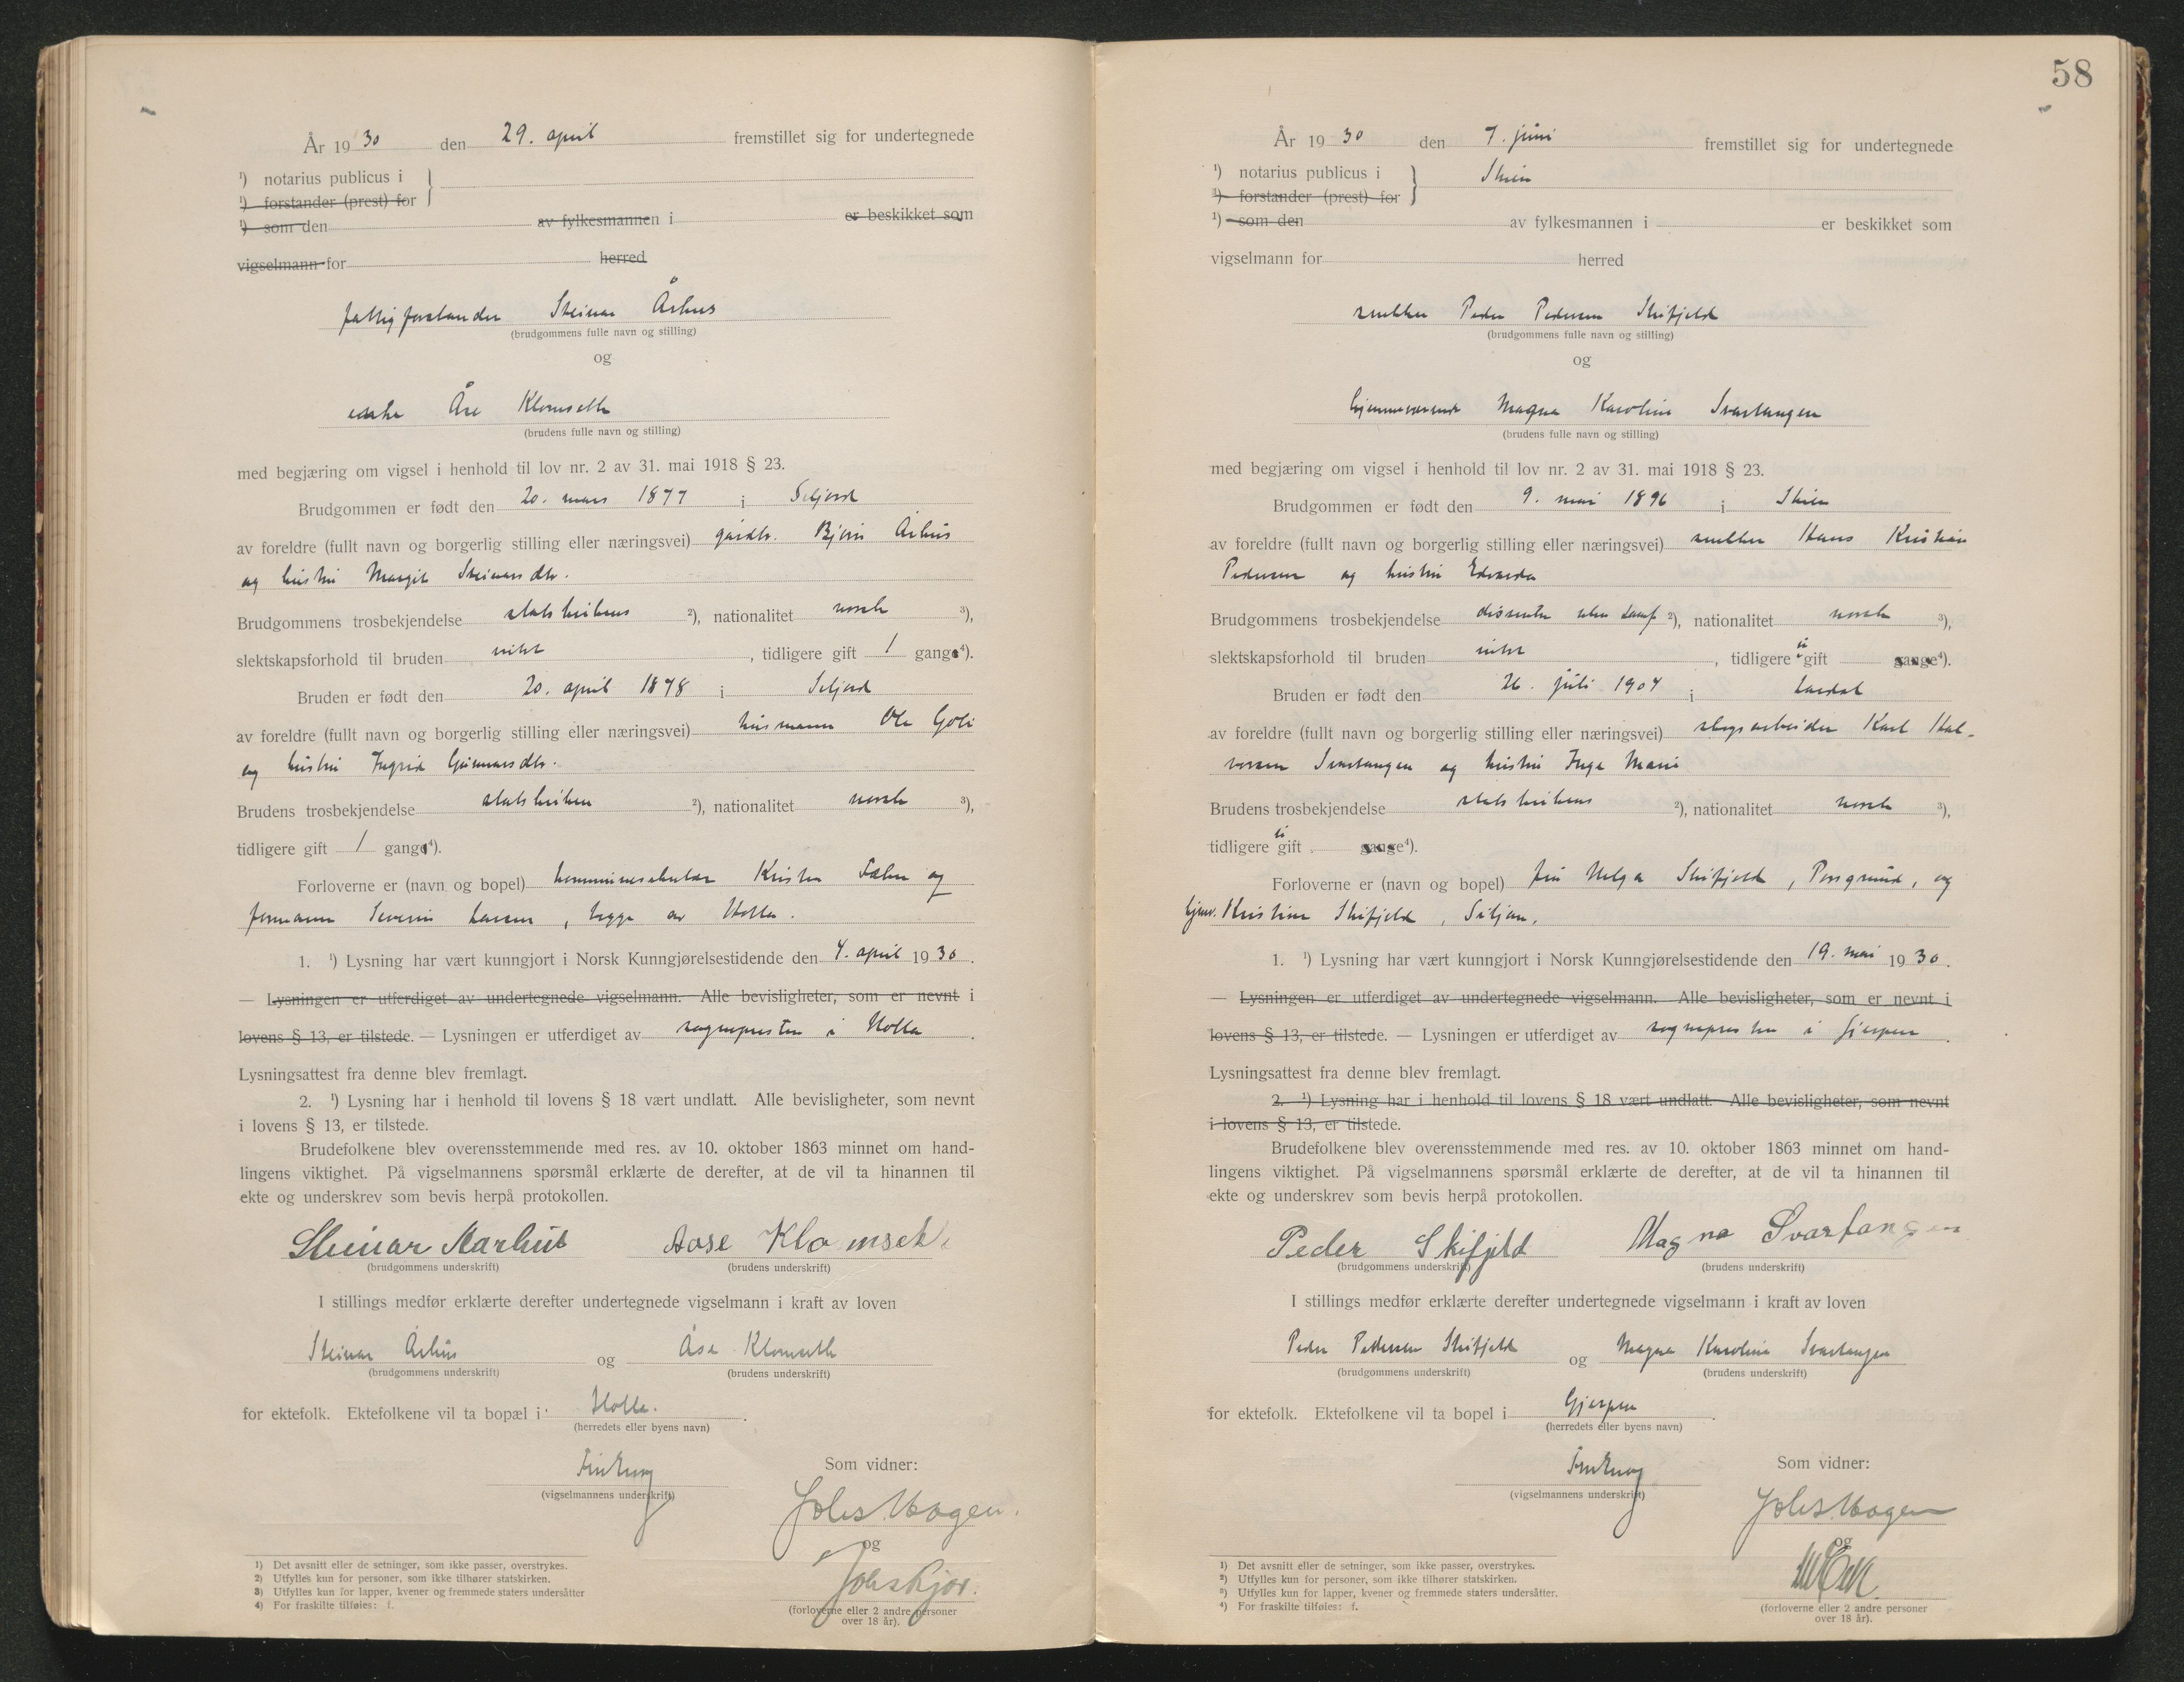 År 1930 den 29. april fremstillet sig for undertegnede
¹) notarius publicus i
¹) forstander (prest) for
¹) som den av fylkesmannen i er beskikket som
vigselmann for herred
fattigforstander Steinar Århus
(brudgommens fulle navn og stilling)
og
enke Åse Klomseth
(brudens fulle navn og stilling)
med begjæring om vigsel i henhold til lov nr. 2 av 31. mai 1918 § 23.
Brudgommen er født den 20. mars 1877 i Seljord
av foreldre (fullt navn og borgerlig stilling eller næringsvei) gårdbr. Bjørn Århus
og hustru Margit Steinarsdtr.
Brudgommens trosbekjendelse statskirkens ²), nationalitet norsk ³),
slektskapsforhold til bruden intet, tidligere gift 1 gang⁴).
Bruden er født den 20. april 1878 i Seljord
av foreldre (fullt navn og borgerlig stilling eller næringsvei) husmann Ole Goli
og hustru Ingrid Gunnarsdtr.
Brudens trosbekjendelse statskirken ²), nationalitet norsk ³),
tidligere gift 1 gang⁴).
Forloverne er (navn og bopel) kommunesekretær Kristen og
formann Severin Larsen, begge av Holla.
1. ¹) Lysning har vært kunngjort i Norsk Kunngjørelsestidende den 4. april 1930.
— Lysningen er utferdiget av undertegnede vigselmann. Alle bevisligheter, som er nevnt i
lovens § 13, er tilstede. — Lysningen er utferdiget av sognepresten i Holla.
Lysningsattest fra denne blev fremlagt.
2. ¹) Lysning har i henhold til lovens § 18 vært undlatt. Alle bevisligheter, som nevnt
i lovens § 13, er tilstede.
Brudefolkene blev overensstemmende med res. av 10. oktober 1863 minnet om hand-
lingens viktighet. På vigselmannens spørsmål erklærte de derefter, at de vil ta hinannen til
ekte og underskrev som bevis herpå protokollen.
Steinar Aarhus Aase Klomseth
(brudgommens underskrift) (brudens underskrift)
I stillings medfør erklærte derefter undertegnede vigselmann i kraft av loven
Steinar Århus og Åse Klomseth
(brudgommens underskrift) (brudens underskrift)
for ektefolk. Ektefolkene vil ta bopæl i Holla.
(herredets eller byens navn)
Som vidner:
(vigselmannens underskrift)
Johs Hagen.
og
Johs Kjør.
(forloverne eller 2 andre personer
over 18 år).
1) Det avsnitt eller de setninger, som ikke passer, overstrykes.
2) Utfylles kun for personer, som ikke tilhører statskirken.
3) Utfylles kun for lapper, kvener og fremmede staters undersåtter
4) For fraskilte tilføies: f.
58
År 1930 den 7. juni fremstillet sig for undertegnede
¹) notarius publicus i Skien
¹) forstander (prest) for
¹) som den av fylkesmannen i er beskikket som
vigselmann for herred
snekker Peder Pedersen Skifjeld
(brudgommens fulle navn og stilling)
og
hjemmeværende Magna Karoline Svartangen
(brudens fulle navn og stilling)
med begjæring om vigsel i henhold til lov nr. 2 av 31. mai 1918 § 23.
Brudgommen er født den 9. mai 1896 i Skien
av foreldre (fullt navn og borgerlig stilling eller næringsvei) snekker Hans Kristian
Pedersen og hustru Edvarda
Brudgommens trosbekjendelse dissenter uten samf. ²), nationalitet norsk ³),
slektskapsforhold til bruden intet, tidligere ei gift gange⁴).
Bruden er født den 26. juli 1904 i Lardal
av foreldre (fullt navn og borgerlig stilling eller næringsvei) skogsarbeider Karl Hal-
vorsen Svartangen og hustru Inga Marie
Brudens trosbekjendelse statskirkens ²), nationalitet norsk ³),
tidligere ei gift gange⁴).
Forloverne er (navn og bopel) fru Helga Skifjeld, Porsgrund, og
hjemv. Kristine Skifjeld, Siljan.
1. ¹) Lysning har vært kunngjort i Norsk Kunngjørelsestidende den 19. mai 1930.
— Lysningen er utferdiget av undertegnede vigselmann. Alle bevisligheter, som er nevnt i
lovens § 13, er tilstede. — Lysningen er utferdiget av sognepresten i Gjerpen.
Lysningsattest fra denne blev fremlagt.
2. ¹) Lysning har i henhold til lovens § 18 vært undlatt. Alle bevisligheter, som nevnt
i lovens § 13, er tilstede.
Brudefolkene blev overensstemmende med res. av 10. oktober 1863 minnet om hand-
lingens viktighet. På vigselmannens spørsmål erklærte de derefter, at de vil ta hinannen til
ekte og underskrev som bevis herpå protokollen.
Peder Skifjeld Magna Svartangen
(brudgommens underskrift) (brudens underskrift)
I stillings medfør erklærte derefter undertegnede vigselmann i kraft av loven
Peder Pedersen Skifjeld og Magna Karoline Svartangen
(brudgommens underskrift) (brudens underskrift)
for ektefolk. Ektefolkene vil ta bopel i Gjerpen.
(herredets eller byens navn)
Som vidner:
(vigselmannens underskrift)
Johs Hagen
og
(forloverne eller 2 andre personer
over 18 år).
1) Det avsnitt eller de setninger, som ikke passer, overstrykes.
2) Utfylles kun for personer, som ikke tilhører statskirken.
3) Utfylles kun for lapper, kvener og fremmede staters undersåtter.
4) For fraskilte tilføies: f.